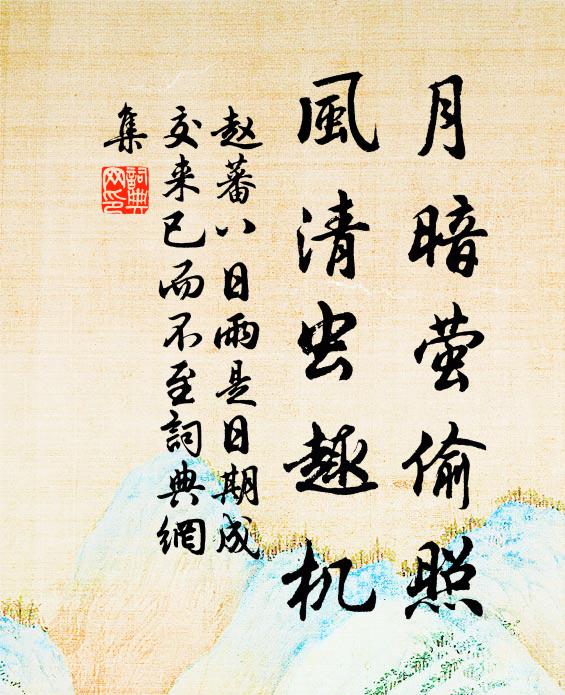 月暗萤偷照
風清虫趣机
赵蕃八日雨是日期成
交来已而不至詞典網
集
詞典网印